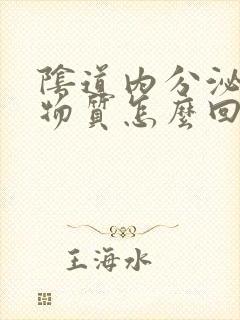 陰道内分泌
物質怎麼回
王海水